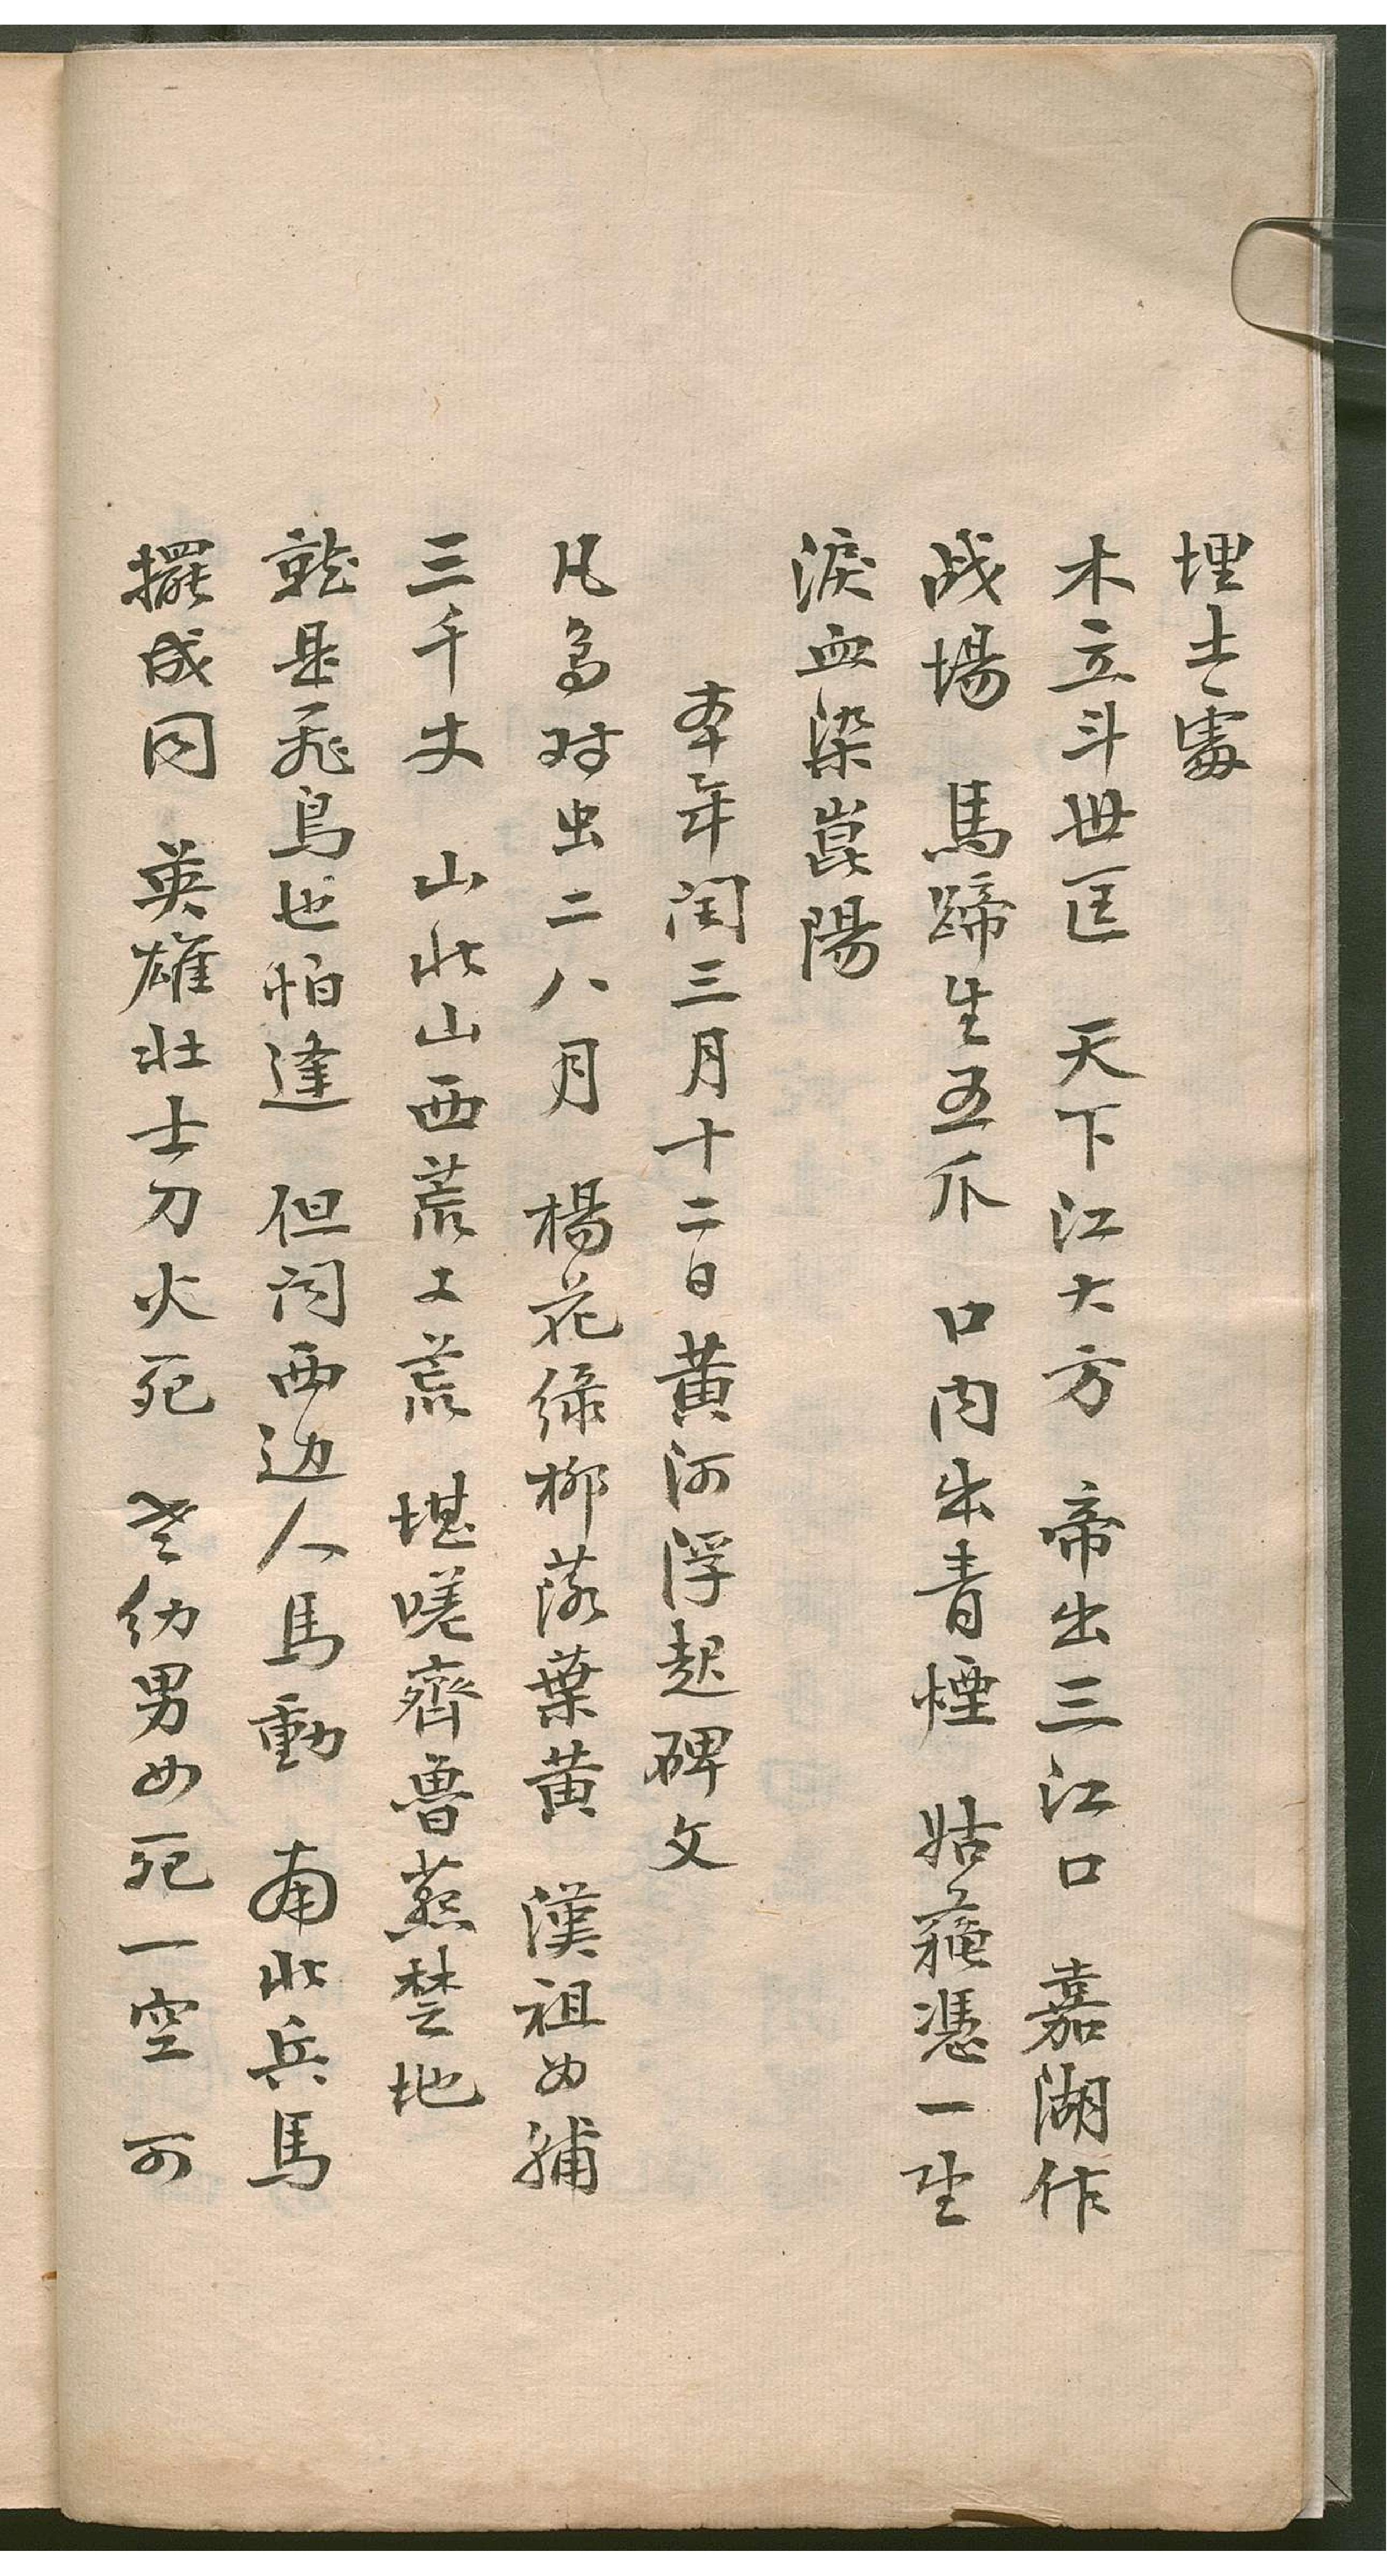 埋土處
木立斗世匡 天下江大方 帝出三江口 嘉湖作
战場 馬蹄生五爪 口内出青煙 姑蘓憑一望
淚血染崑陽
本年闰三月十二日黄河浮起碑文
凡鸟对虫二八月 楊花绿柳落葉黄 漢祖如補
三千丈 山北山西荒又荒 堪嗟齊魯燕楚地
就是飛鳥也怕逢 但闻西边人馬動 南北兵馬
擺成同 英雄壮士刀火死 老幼男女死一空 可